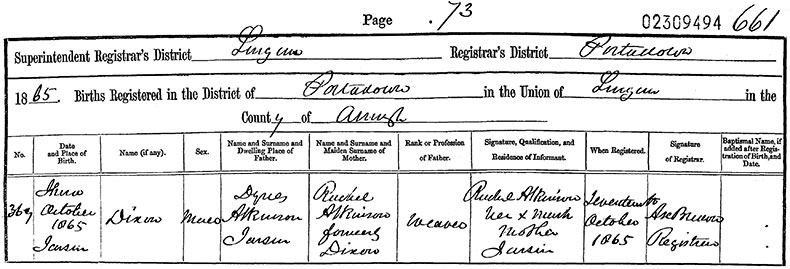 Page 73 02309494 661
Superintendent Registrar's District Lurgan Registrar's District Portadown
1865. Births Registered in the District of Portadown in the Union of Lurgan in the
County of Armagh
No. Date and Place of Birth. Name (if any). Sex. Name and Surname and Dwelling Place of Father. Name and Surname and Maiden Surname of Mother. Rank or Profession of Father. Signature, Qualification, and Residence of Informant. When Registered. Signature of Registrar. Baptismal Name, if added after Registration of Birth, and Date.
October 1865
Dixon
Male
Dynes Atkinson
Rachel Atkinson formerly Dixon
Weaver
Rachel Atkinson her x mark Mother
Seventeenth October 1865
Registrar